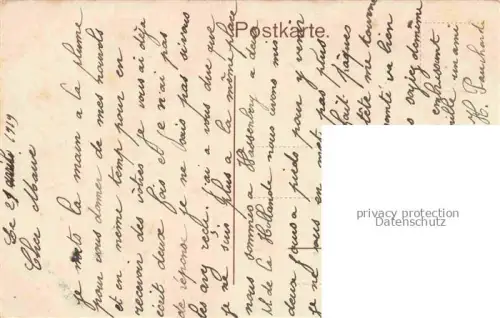 Postkarte.
Le 21 avril 1919
Cher Marie
je mets la main a la plume
pour vous donner de mes nouvels
et en même temp pour en
recevoir des vôtres je vous ai déja
écrit deux fois et je n'ai pas
de réponse je ne sais pas si vous
les avez reçu. j'ai a vous dire que
je ne suis plus a la même place
nous sommes a Hassenberg a deux
de la Hollande nous avons mis
deux jours a pieds pour y venir
je ne vous en met pas plus
fait pâques
tête me tourne
santé va bien
en
un ami
H.
privacy protection
Datenschutz